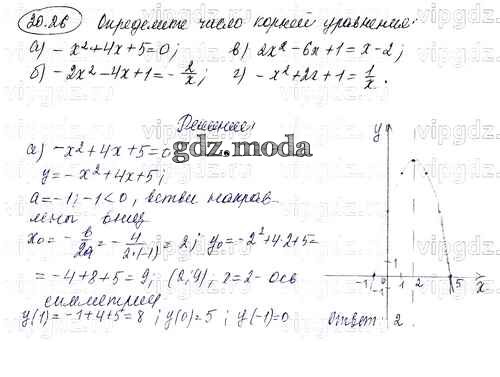 20.26 Определите число корней уравнения:
а) -x²+4x+5=0; в) 2x²-6x+1=x-2;
б) -2x²-4x+1=-2/x; г) -x²+2x+1=1/x.
Решение
а) -x²+4x+5=0
gdz.moda
y=-x²+4x+5;
a=-1; -1<0, ветви направ-
лены вниз
x₀=-b/2a=-4/2·(-1)=2; y₀=-2²+4·2+5=
=-4+8+5=9; (2;9); x=2- ось
симметрии
y(1)=-1+4+5=8; y(0)=5; y(-1)=0
y
1
-1 0 1 2 5 x
-1
Ответ: 2.
vipgdz.com